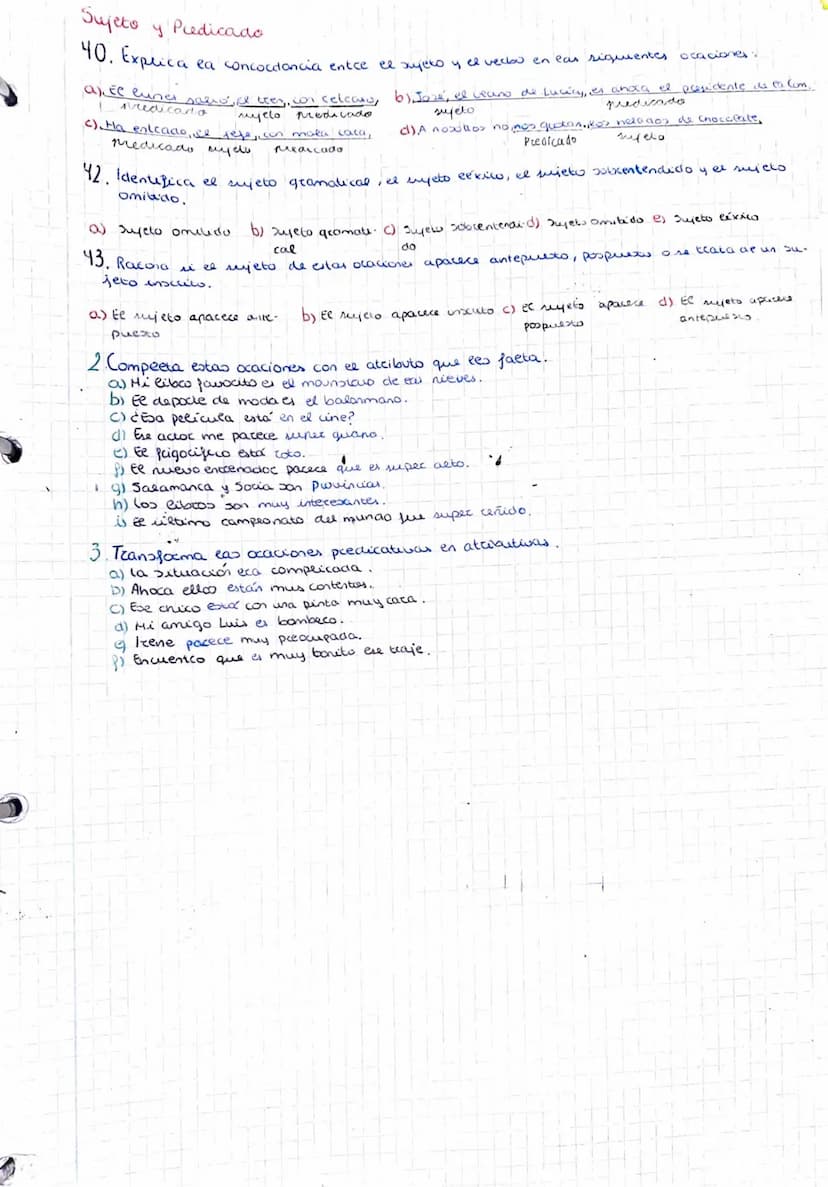 Sujeto y Predicado
40. Explica la concordancia entre el sujeto y el verbo en las siguientes oraciones.
a) El lunes salió, el tren, con retraso, b) José, el vecino de Lucía, es ahora el presidente de la com.
predicado sujeto predicado sujeto predicado
c) Ha entrado, el jefe, con mala cara, d) A nosotros no nos gustan, los helados de chocolate.
predicado sujeto predicado Predicado sujeto
42. Identifica el sujeto gramatical, el sujeto léxico, el sujeto sobrentendido y el sujeto
omitido.
a) Sujeto omitido b) Sujeto gramati- c) Sujeto sobrentendi- d) Sujeto omitido e) Sujeto léxico
cal do
43. Razona si el sujeto de estas oraciones aparece antepuesto, pospuesto o se trata de un su-
jeto inscrito.
a) El sujeto aparece ante- b) El sujeto aparece inscrito c) El sujeto aparece d) El sujeto aparece
puesto pospuesto antepuesto
2. Completa estas oraciones con el atributo que les falta.
a) Mi libro favorito es el monstruo de las nieves.
b) El deporte de moda es el balonmano.
c) ¿Esa película está en el cine?
d) Ese actor me parece super guapo.
e) El frigorífico está roto.
f) El nuevo entrenador parece que es super alto.
g) Salamanca y Soria son Provincias.
h) Los libros son muy interesantes.
i) El último campeonato del mundo fue super reñido.
3. Transforma las oraciones predicativas en atributivas.
a) La situación era complicada.
b) Ahora ellos están mus contentos.
c) Ese chico está con una pinta muy rara.
d) Mi amigo Luis es bombero.
e) Irene parece muy preocupada.
f) Encuentro que es muy bonito ese traje.